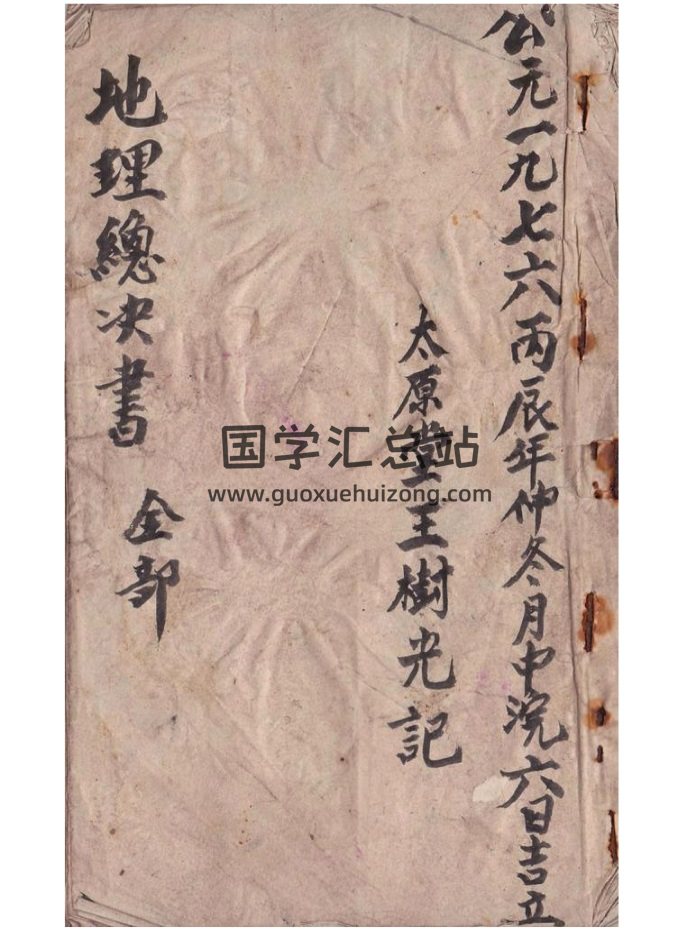 公元一九七六丙辰年仲冬月中浣六日吉立
太原堂王樹光記
地理總决書 全部
国学汇总站
www.guoxuehuizong.com